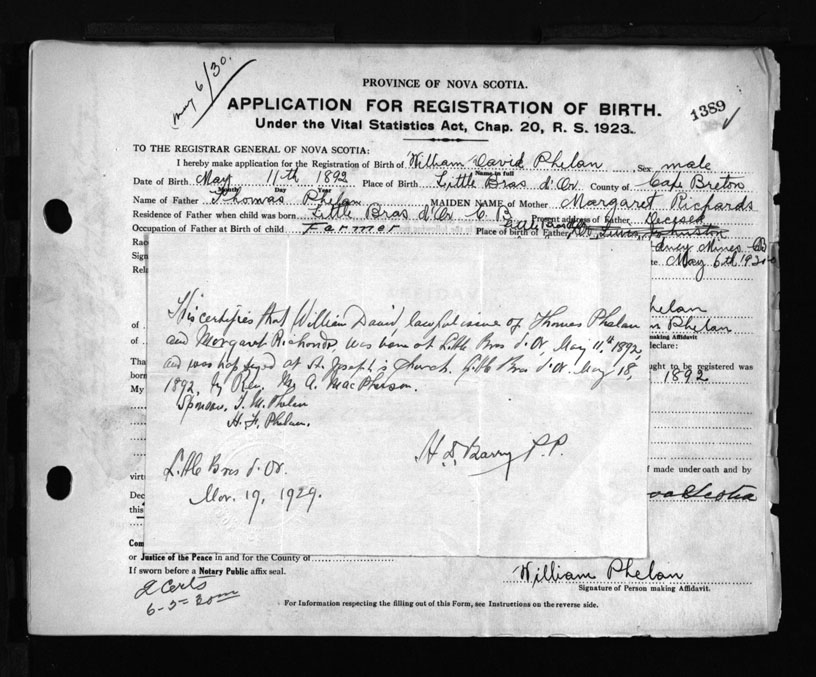 May 6/30.
PROVINCE OF NOVA SCOTIA.
1389
APPLICATION FOR REGISTRATION OF BIRTH.
Under the Vital Statistics Act, Chap. 20, R. S. 1923.
TO THE REGISTRAR GENERAL OF NOVA SCOTIA:
I hereby make application for the Registration of Birth of William David Phelan Sex male
Name in full
Date of Birth May 11th 1892 Place of Birth Little Bras d'Or County of Cape Breton
Month Day Year
Name of Father Thomas Phelan MAIDEN NAME of Mother Margaret Richards
Residence of Father when child was born Little Bras d'Or C B Present address of Father
Occupation of Father at Birth of child Farmer Place of birth of Father Little Bras d'Or
Rac dney Mines CB
Sign te May 6th 1930
Rela
helan
of Phelan
making Affidavit
of declare:
Tha ught to be registered was
born 1892
My
This certifies that William David, lawful issue of Thomas Phelan
and Margaret Richards, was born at Little Bras d'Or, May 11th 1892,
and was baptized at St. Joseph's Church. Little Bras d'Or. May 18,
1892, by Rev. A. MacPherson.
Sponsors, J. M. Phelan
H. F. Phelan.
H. D. Barry P.P.
Little Bras d'Or.
Nov. 19, 1929.
f made under oath and by
virtu
Dec ova Scotia
this
Com
or Justice of the Peace in and for the County of
If sworn before a Notary Public affix seal.
William Phelan
Signature of Person making Affidavit.
2 Certs
For Information respecting the filling out of this Form, see Instructions on the reverse side.